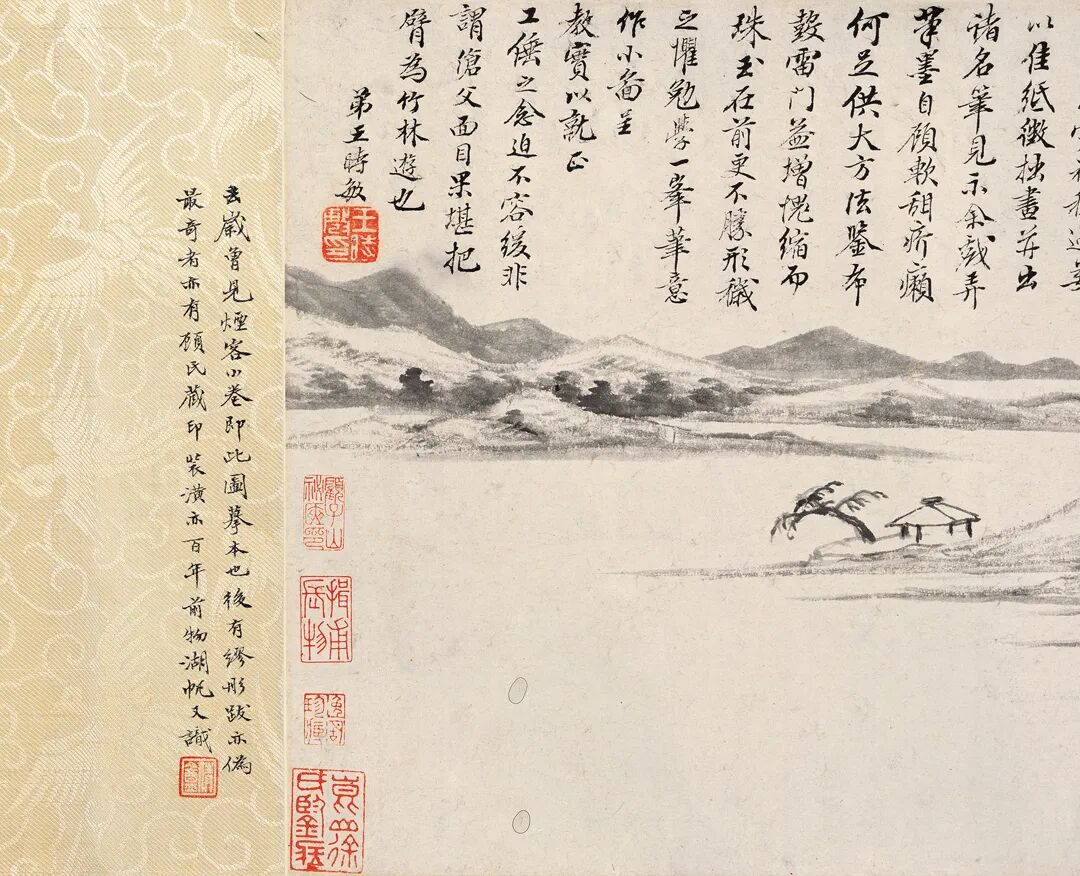 以佳紙徵拙畫并出
諸名筆見示余戲弄
筆墨自顧軟甜疥癩
何足供大方法鑒布
鼓雷門益增愧縮而
珠玉在前更不勝形穢
之懼勉學一峯筆意
作小圖呈
教實以就正
工倕之念迫不容緩非
謂傖父面目果堪把
臂為竹林遊也
弟王時敏
王時敏印
顧子山秘篋印
去歲曾見煙客小卷即此圖摹本也後有繆彤跋亦偽
最奇者亦有顧氏藏印裝潢亦百年前物湖帆又識